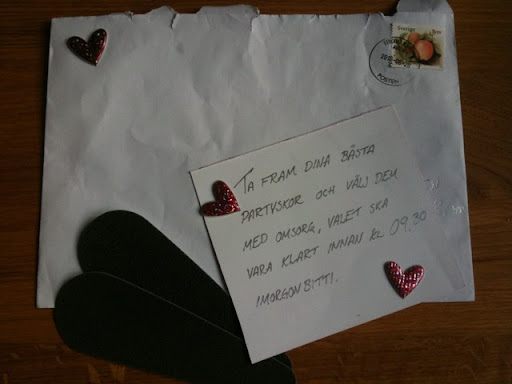 Sverige
POSTEN
TA FRAM DINA BÄSTA
PARTYSKOR OCH VÄLJ DEM
MED OMSORG, VALET SKA
VARA KLART INNAN KL 09.30
IMORGONBITTI.